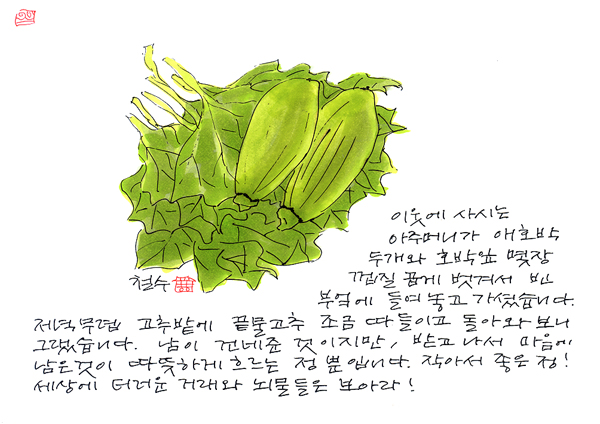 이웃에 사시는
아주머니가 애호박
두개와 호박잎 몇장
껍질 곱게 벗겨서 빈
부엌에 들여 놓고 가셨습니다.
철수
저녁무렵 고추밭에 끝물고추 조금 따 들이고 돌아와 보니
그랬습니다. 남이 건네준 것이지만, 받고 나서 마음에
남은것이 따뜻하게 흐르는 정 뿐입니다. 작아서 좋은 정!
세상에 더러운 거래와 뇌물들은 보아라!